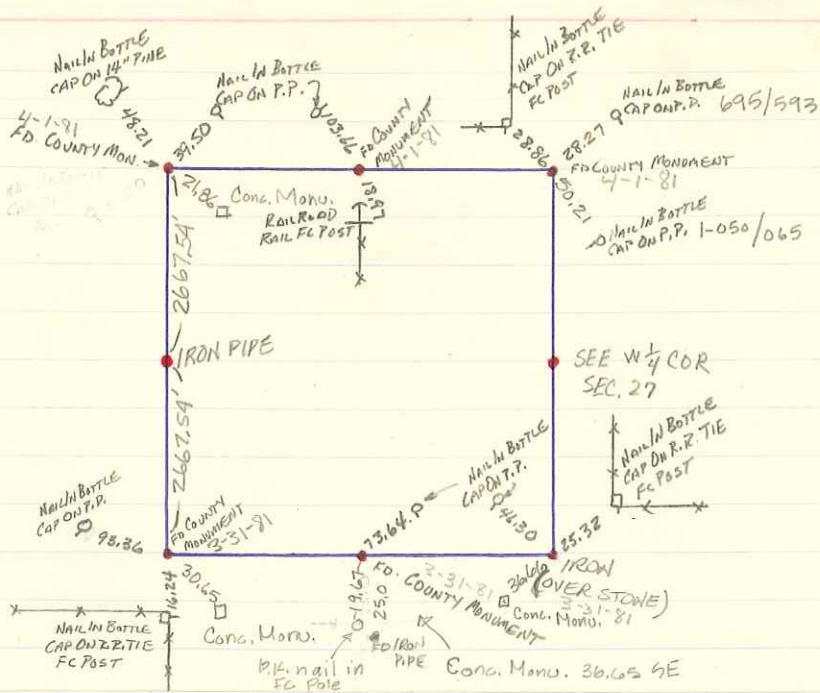 NAIL IN BOTTLE
CAP ON 14" PINE
48.21
4-1-81
FD. COUNTY MON.
39.50
NAIL IN BOTTLE
CAP ON P.P.
103.66
FD COUNTY
MONUMENT
4-1-81
NAIL IN BOTTLE
CAP ON R.R. TIE
FC POST
28.86
28.27
NAIL IN BOTTLE
CAP ON P.P. 695/593
FD COUNTY MONUMENT
4-1-81
50.21
NAIL IN BOTTLE
CAP ON P.P. 1-050/065
21.86
Conc. Monu.
18.97
RAILROAD
RAIL FC POST
2667.54'
IRON PIPE
2667.54'
SEE W 1/4 COR
SEC. 27
NAIL IN BOTTLE
CAP ON R.R. TIE
FC POST
25.32
NAIL IN BOTTLE
CAP ON P.P.
46.30
73.64
NAIL IN BOTTLE
CAP ON P.P.
93.36
FD COUNTY
MONUMENT
3-31-81
16.24
30.65
Conc. Monu.
NAIL IN BOTTLE
CAP ON R.R. TIE
FC POST
19.67
P.K. nail in
FC Pole
25.0
FD IRON
PIPE
3-31-81
FD. COUNTY MONUMENT
36.66
Conc. Monu.
IRON
(OVER STONE)
3-31-81
Conc. Monu. 36.65 SE